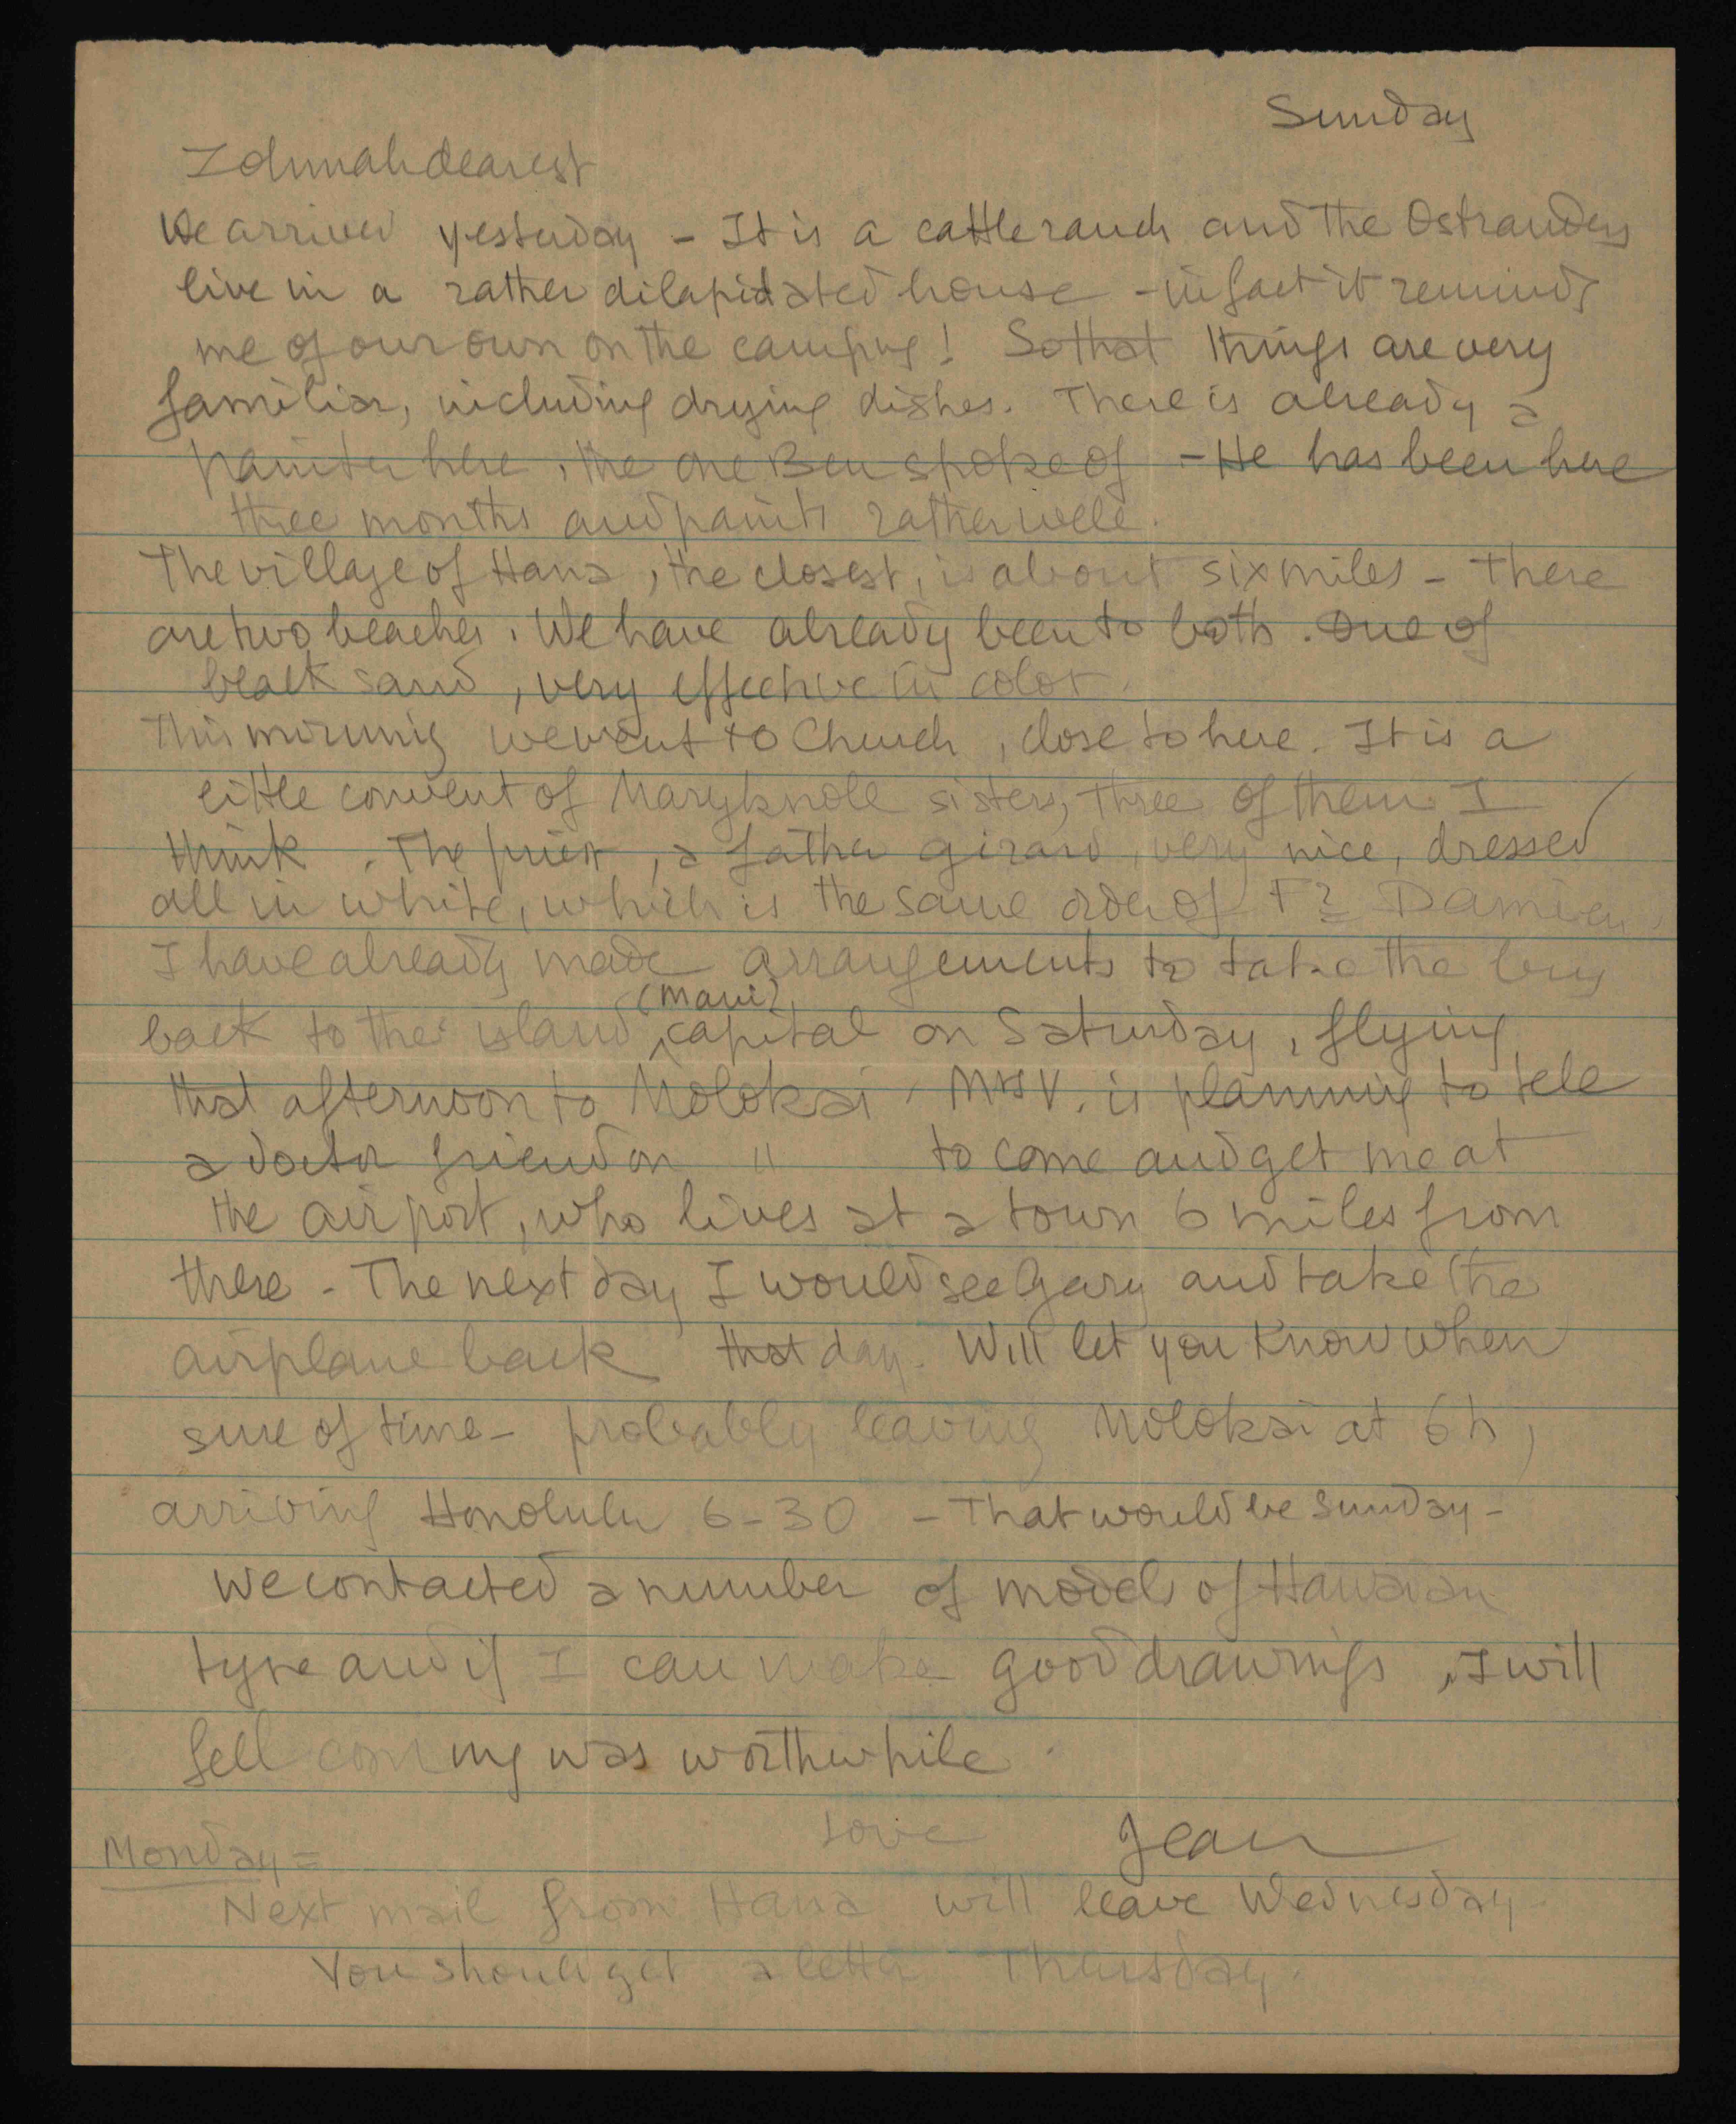 Sunday
Zohmah dearest
We arrived yesterday - It is a cattle ranch and the Ostranders
live in a rather dilapidated house - in fact it reminds
me of our own on the campus! So that things are very
familiar, including drying dishes. There is already a
painter here, the one Ben spoke of - He has been here
three months and paints rather well.
The village of Hana, the closest, is about six miles - There
are two beaches. We have already been to both. One of
black sand, very effective in color.
This morning we went to Church, close to here. It is a
little convent of Maryknoll sisters, three of them I
think. The priest, a father Girard, very nice, dressed
all in white, which is the same order of Fr Damien.
I have already made arrangements to take the bus
(Maui)
back to the island capital on Saturday, flying
that afternoon to Molokai. Mrs V. is planning to tele
a doctor friend on " to come and get me at
the airport, who lives at a town 6 miles from
there - The next day I would see Gary and take the
airplane back that day. Will let you know when
sure of time - probably leaving Molokai at 6h,
arriving Honolulu 6-30 - That would be Sunday -
We contacted a number of models of Hawaian
type and if I can make good drawings, I will
fell coming was worthwhile.
Love Jean
Monday =
Next mail from Hana will leave Wednesday.
You should get a letter Thursday.